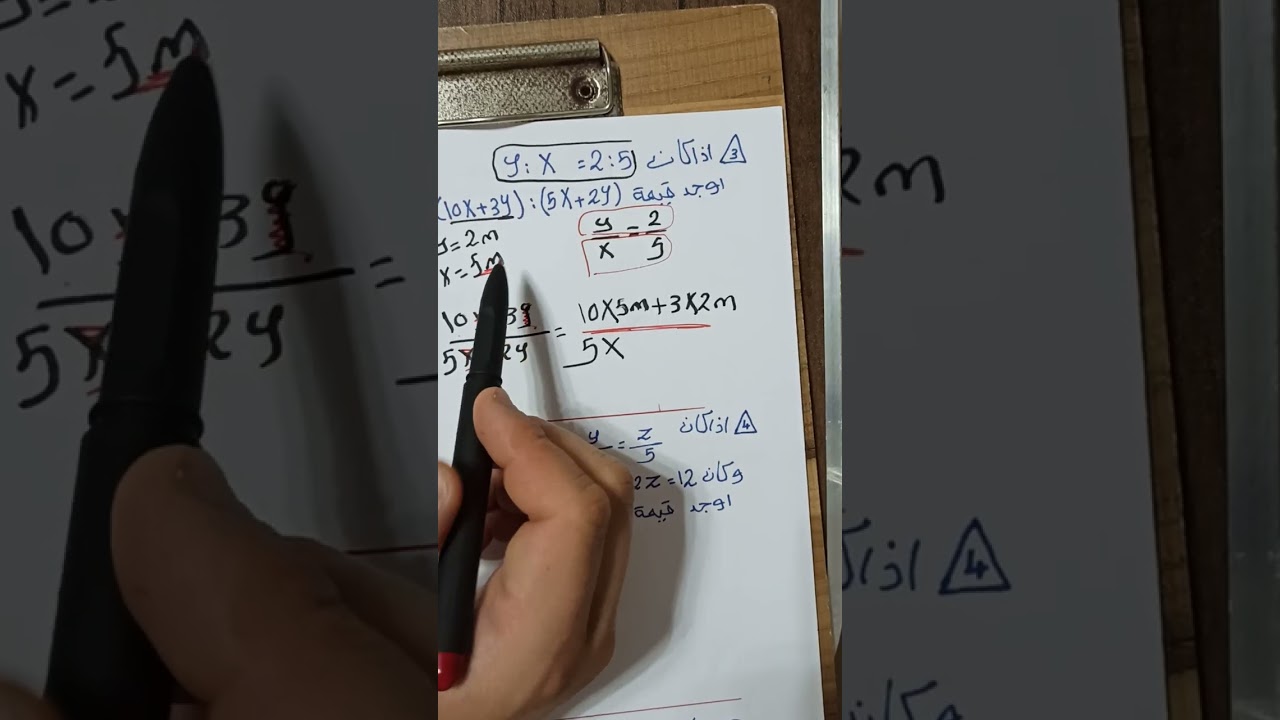 3 اذا كان y : x = 2 : 5
اوجد قيمة (10x+3y) : (5x+2y)
y/x = 2/5
y = 2m
x = 5m
10 3y / 5x 2y = 10x5m+3x2m / 5x
4 اذا كان y = z/5
وكان 2z = 12
اوجد قيمة